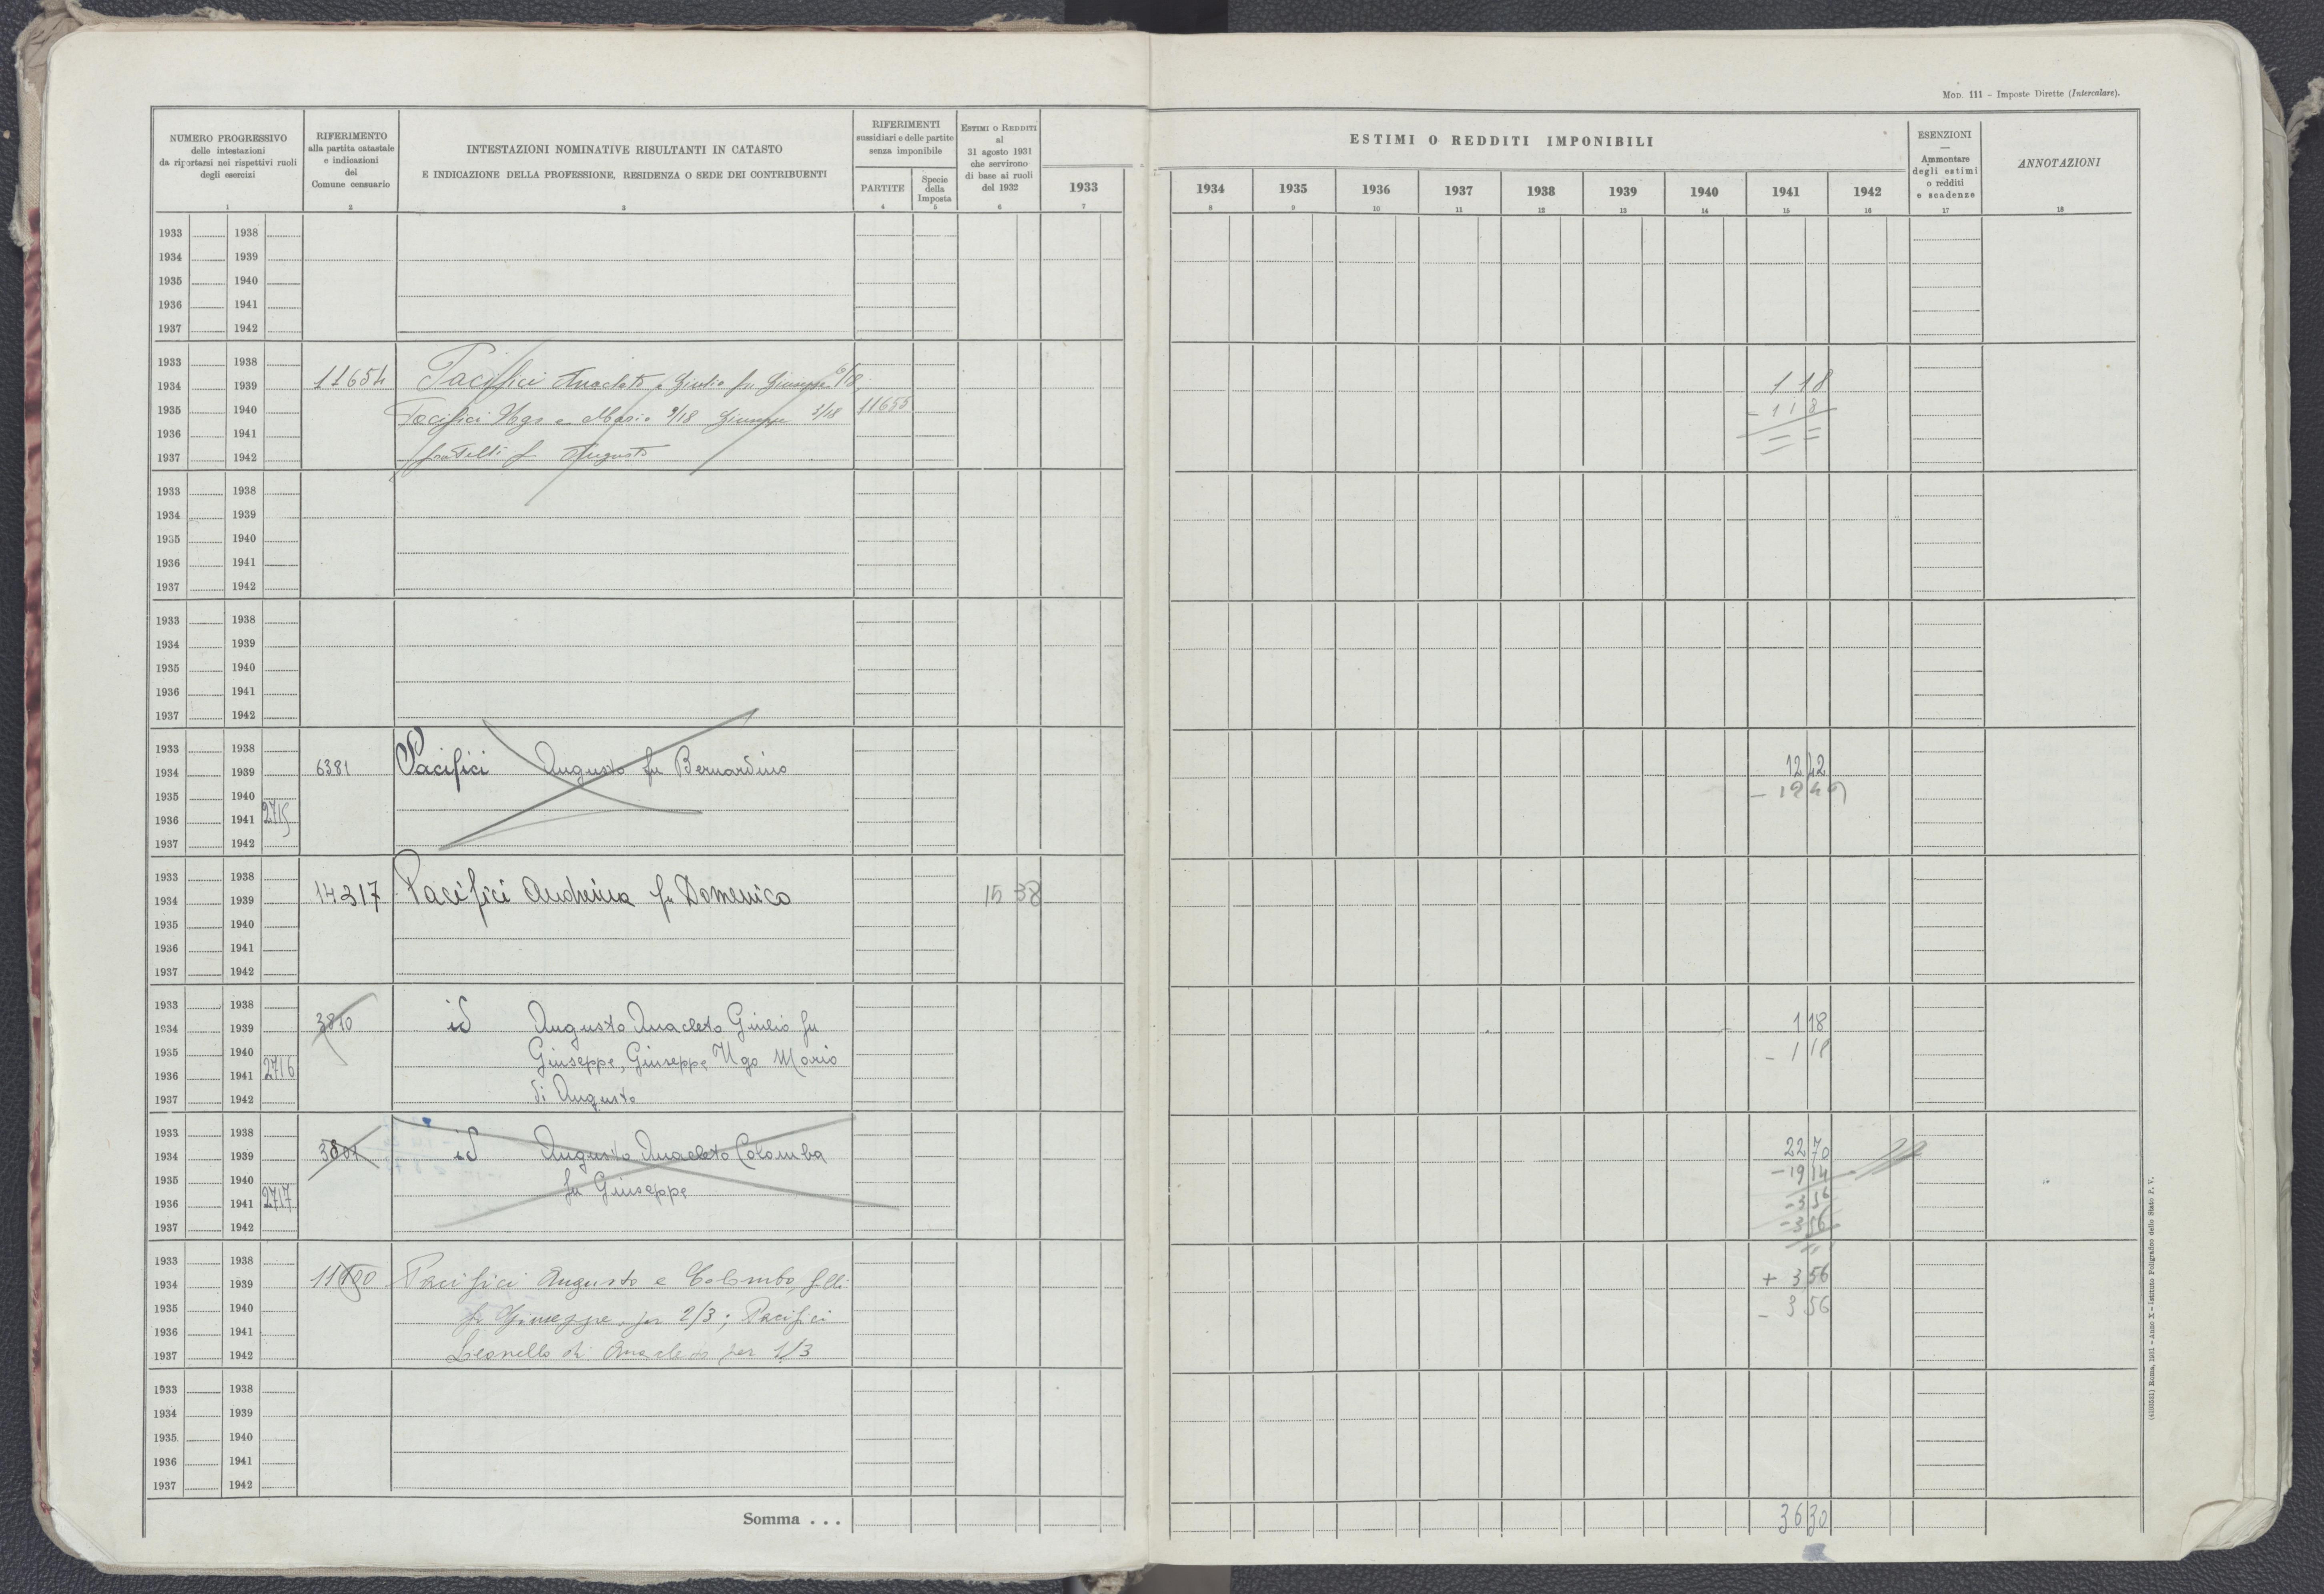 MOD. 111 – Imposte Dirette (Intercalare).
NUMERO PROGRESSIVO
delle intestazioni
da riportarsi nei rispettivi ruoli
degli esercizi
1
RIFERIMENTO
alla partita catastale
e indicazioni
del
Comune censuario
2
INTESTAZIONI NOMINATIVE RISULTANTI IN CATASTO
E INDICAZIONE DELLA PROFESSIONE, RESIDENZA O SEDE DEI CONTRIBUENTI
3
RIFERIMENTI
sussidiari e delle partite
senza imponibile
PARTITE
4
Specie
della
Imposta
5
ESTIMI O REDDITI
al
31 agosto 1931
che servirono
di base ai ruoli
del 1932
6
1933
7
ESTIMI O REDDITI IMPONIBILI
1934 1935 1936 1937 1938 1939 1940 1941 1942
8 9 10 11 12 13 14 15 16
ESENZIONI
—
Ammontare
degli estimi
o redditi
e scadenze
17
ANNOTAZIONI
18
1933 1938
1934 1939
1935 1940
1936 1941
1937 1942
1933 1938
1934 1939 11654 Pacifici Anacleto e Giulio fu Giuseppe /18 118
1935 1940 Pacifici Ugo e Mario 2/18 Giuseppe 3/18 11655 - 118
1936 1941
1937 1942 fratelli fu Augusto =
1933 1938
1934 1939
1935 1940
1936 1941
1937 1942
1933 1938
1934 1939
1935 1940
1936 1941
1937 1942
1933 1938
1934 1939 6381 Pacifici Augusto fu Bernardino 1242
1935 1940 - 1242
1936 1941 2715
1937 1942
1933 1938
1934 1939 14317 Pacifici Andreina fu Domenico 15 38
1935 1940
1936 1941
1937 1942
1933 1938
1934 1939 3810 id Augusto Anacleto Giulio fu 118
1935 1940 Giuseppe, Giuseppe Ugo Mario - 118
1936 1941 2716
1937 1942 di Augusto
1933 1938
1934 1939 3801 id Augusto Anacleto Colomba 2270
1935 1940 - 1914
1936 1941 2717 fu Giuseppe - 356
1937 1942 - 356
1933 1938
1934 1939 11600 Pacifici Augusto e Colomba f.lli + 356
1935 1940 fu Giuseppe, per 2/3; Pacifici - 356
1936 1941
1937 1942 Leonello di Anacleto per 1/3
1933 1938
1934 1939
1935 1940
1936 1941
1937 1942
Somma . . . 3630
(4100531) Roma, 1931 – Anno X – Istituto Poligrafico dello Stato P. V.